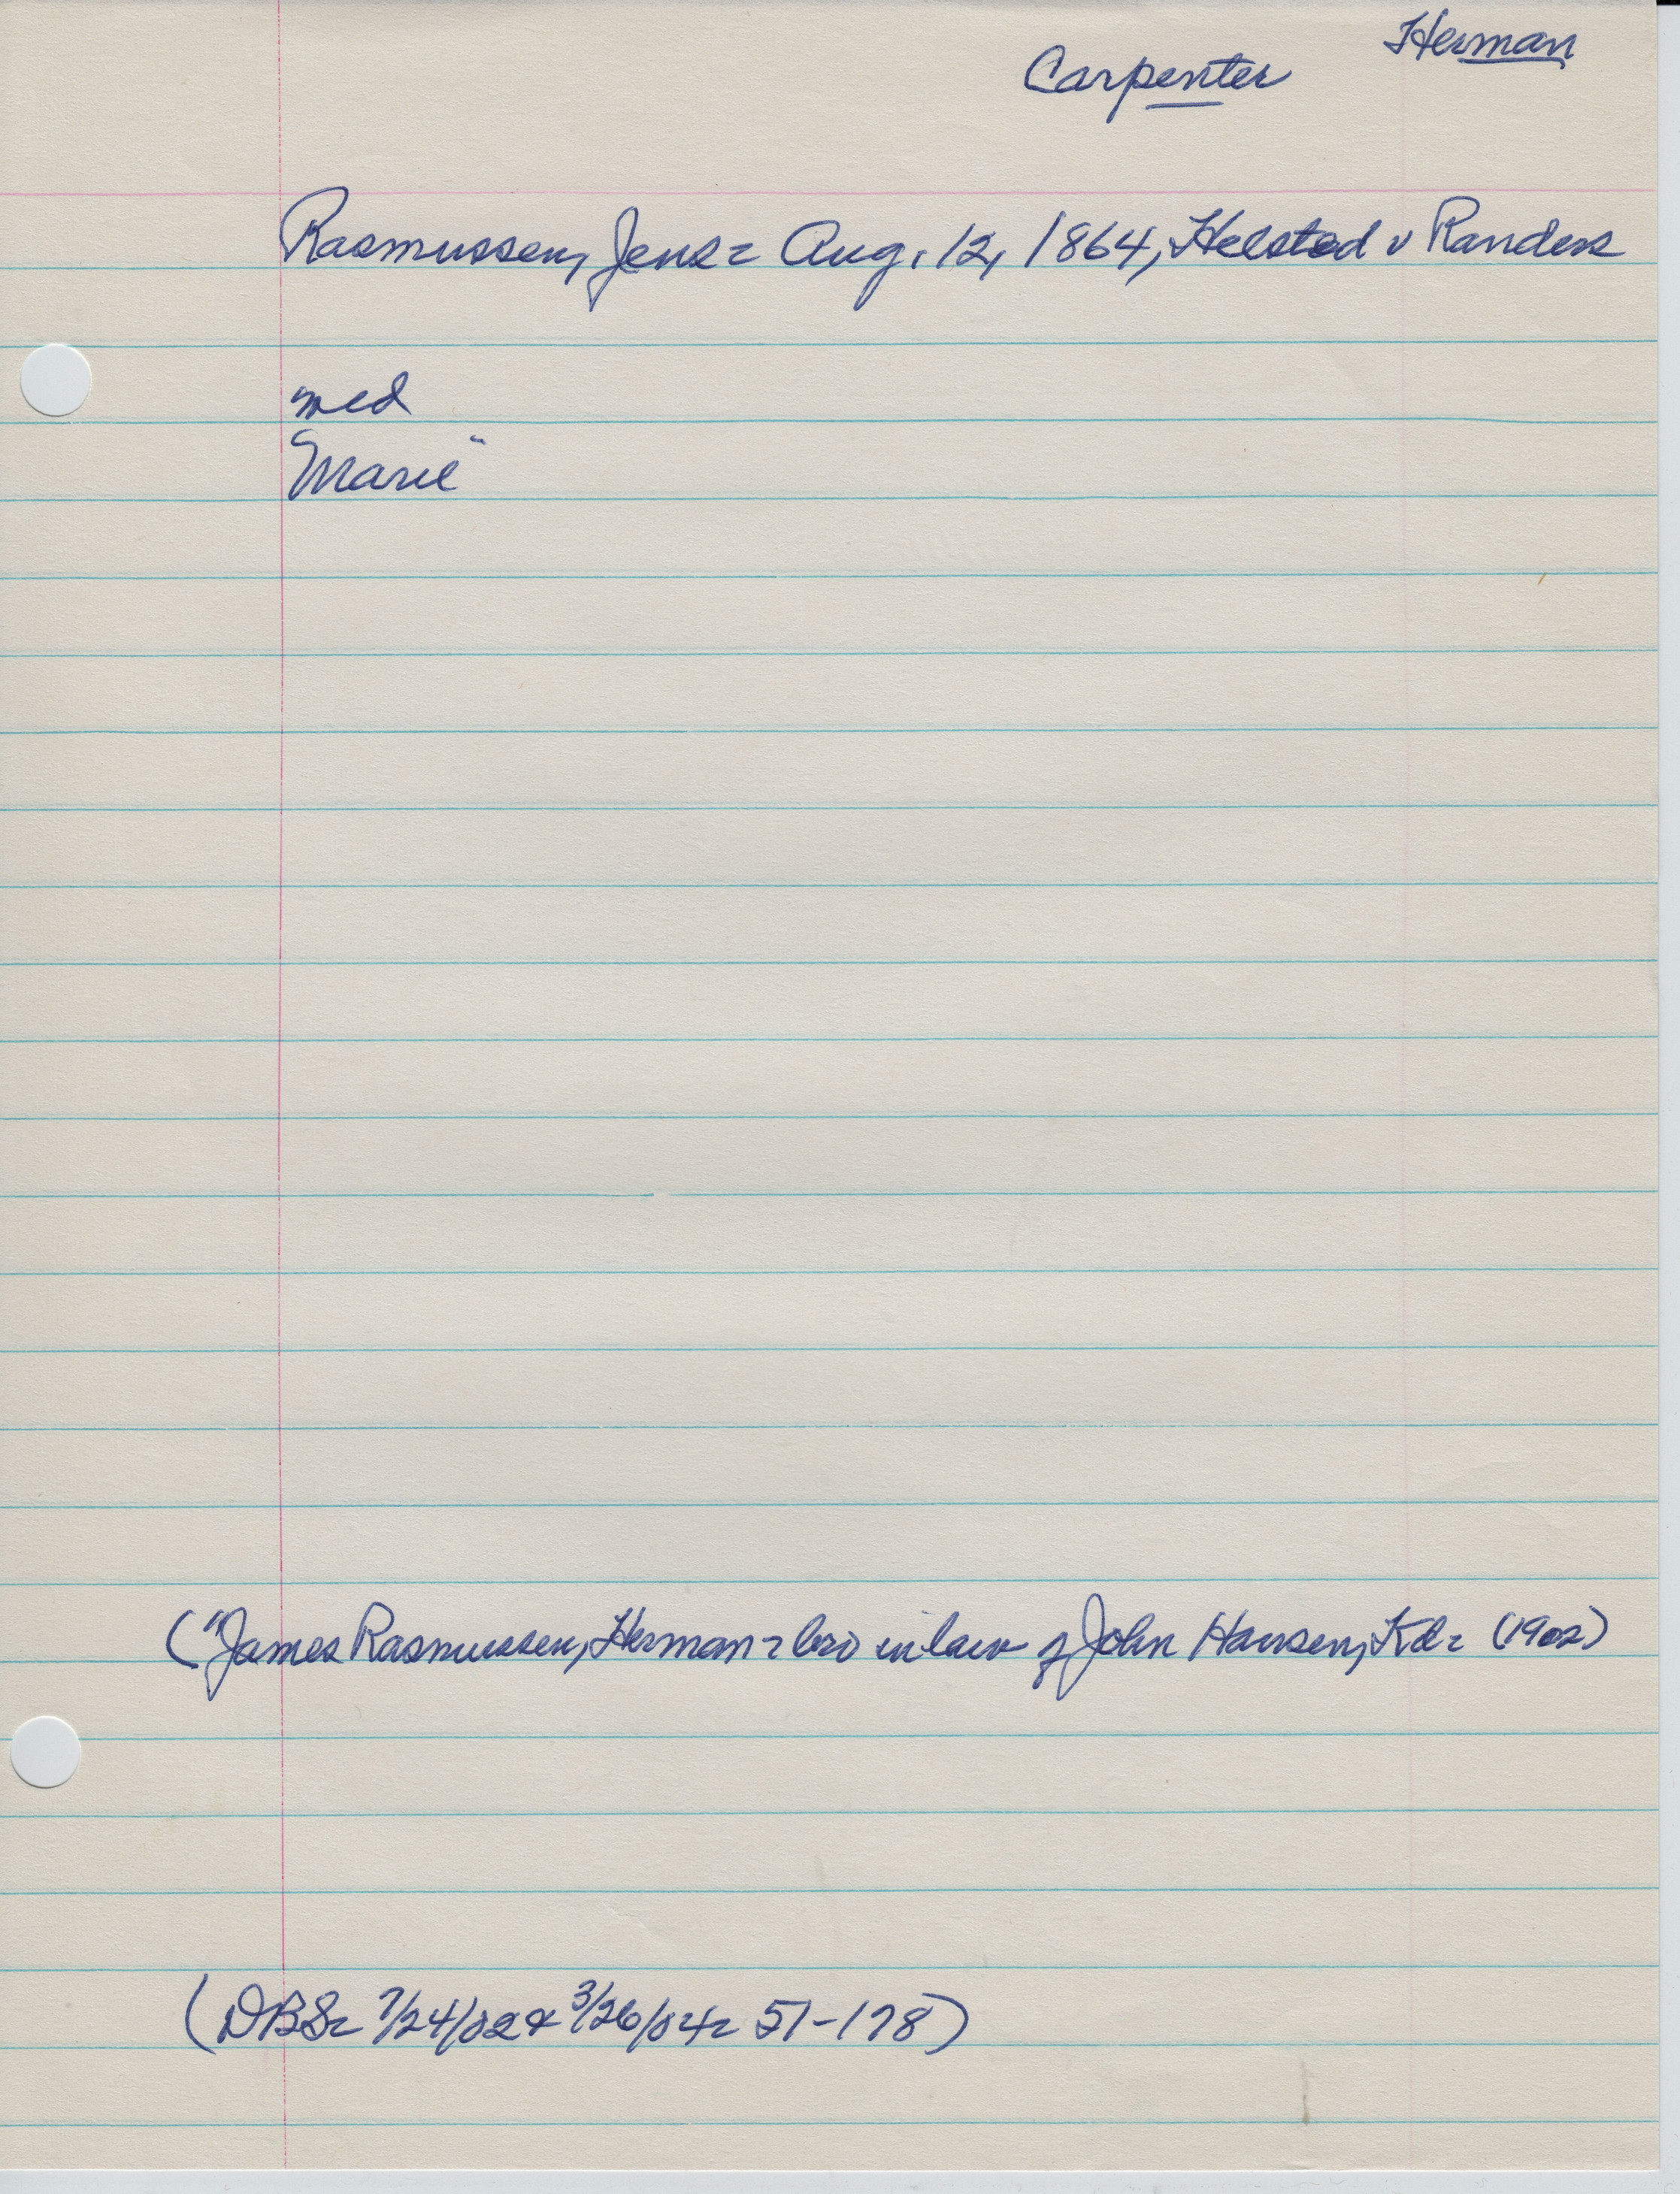 Herman
Carpenter
Rasmussen, Jens = Aug. 12, 1864, Helsted v Randers
med
Marie "
("James Rasmussen, Herman = bro in law of John Hansen, Kd = (1902)
(DBS = 7/24/02 & 3/26/04 = 51-178)